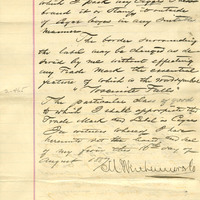 which I pack my Cigars or
brand in a Stamp or
of Cigar boxes in any suitable
manner.
The border surrounding
the label may be changed as de
sired by me without affecting
my Trade Mark the essential
feature of which is the words
"Yosemite Falls"
The particular class of goods
to which I shall appropriate
Trade Mark and Label is Cigars
In witness whereof I have
hereunto set the name
of my firm this 16th day of
August 187